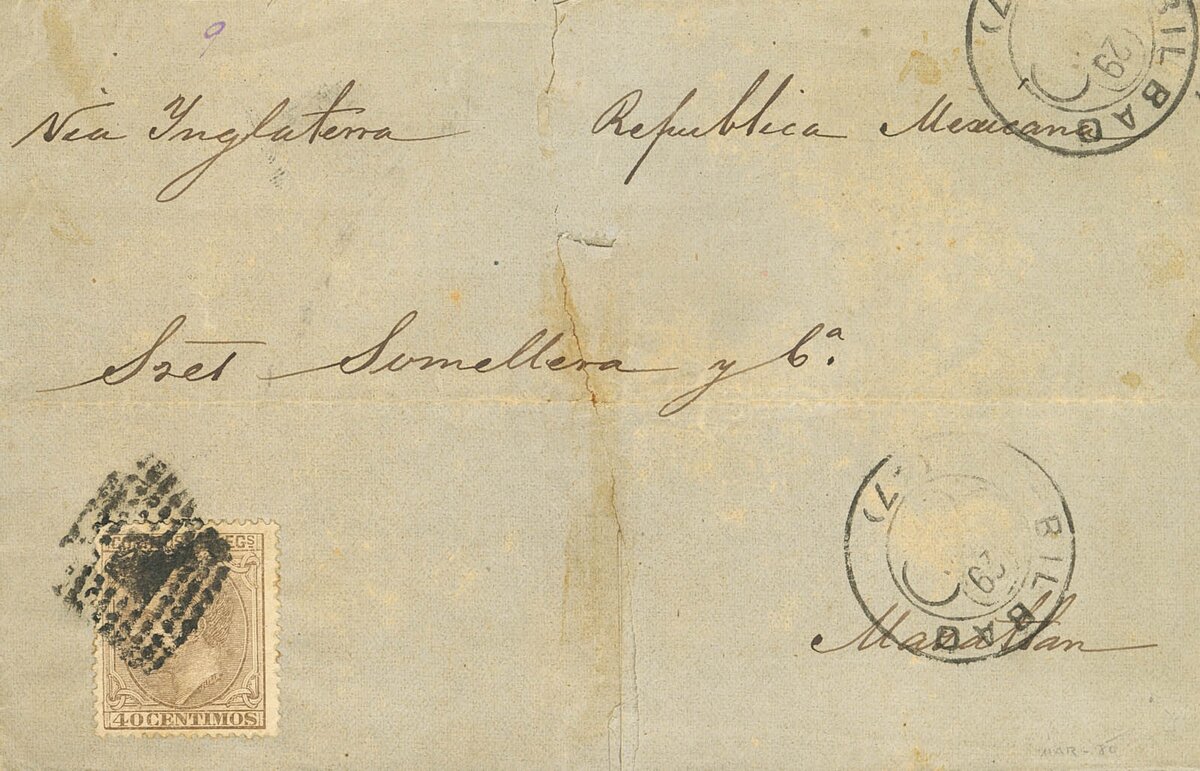 Via Ynglaterra
Republica Mexicana
BILBAO
29
Sres Somellera y Cª.
CORREOS Y TELEGS
40 CENTIMOS
BILBAO
29
Mazatlan
MAR - 80